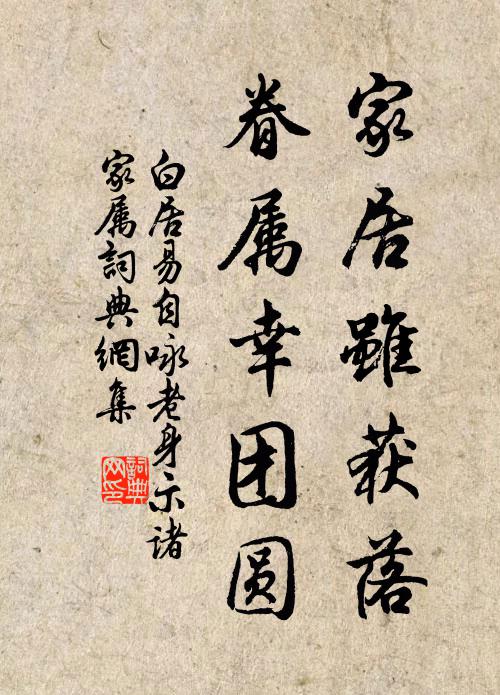 家居雖获落
眷属幸团圆
白居易自咏老身示诸
家属詞典網集
詞典
网印